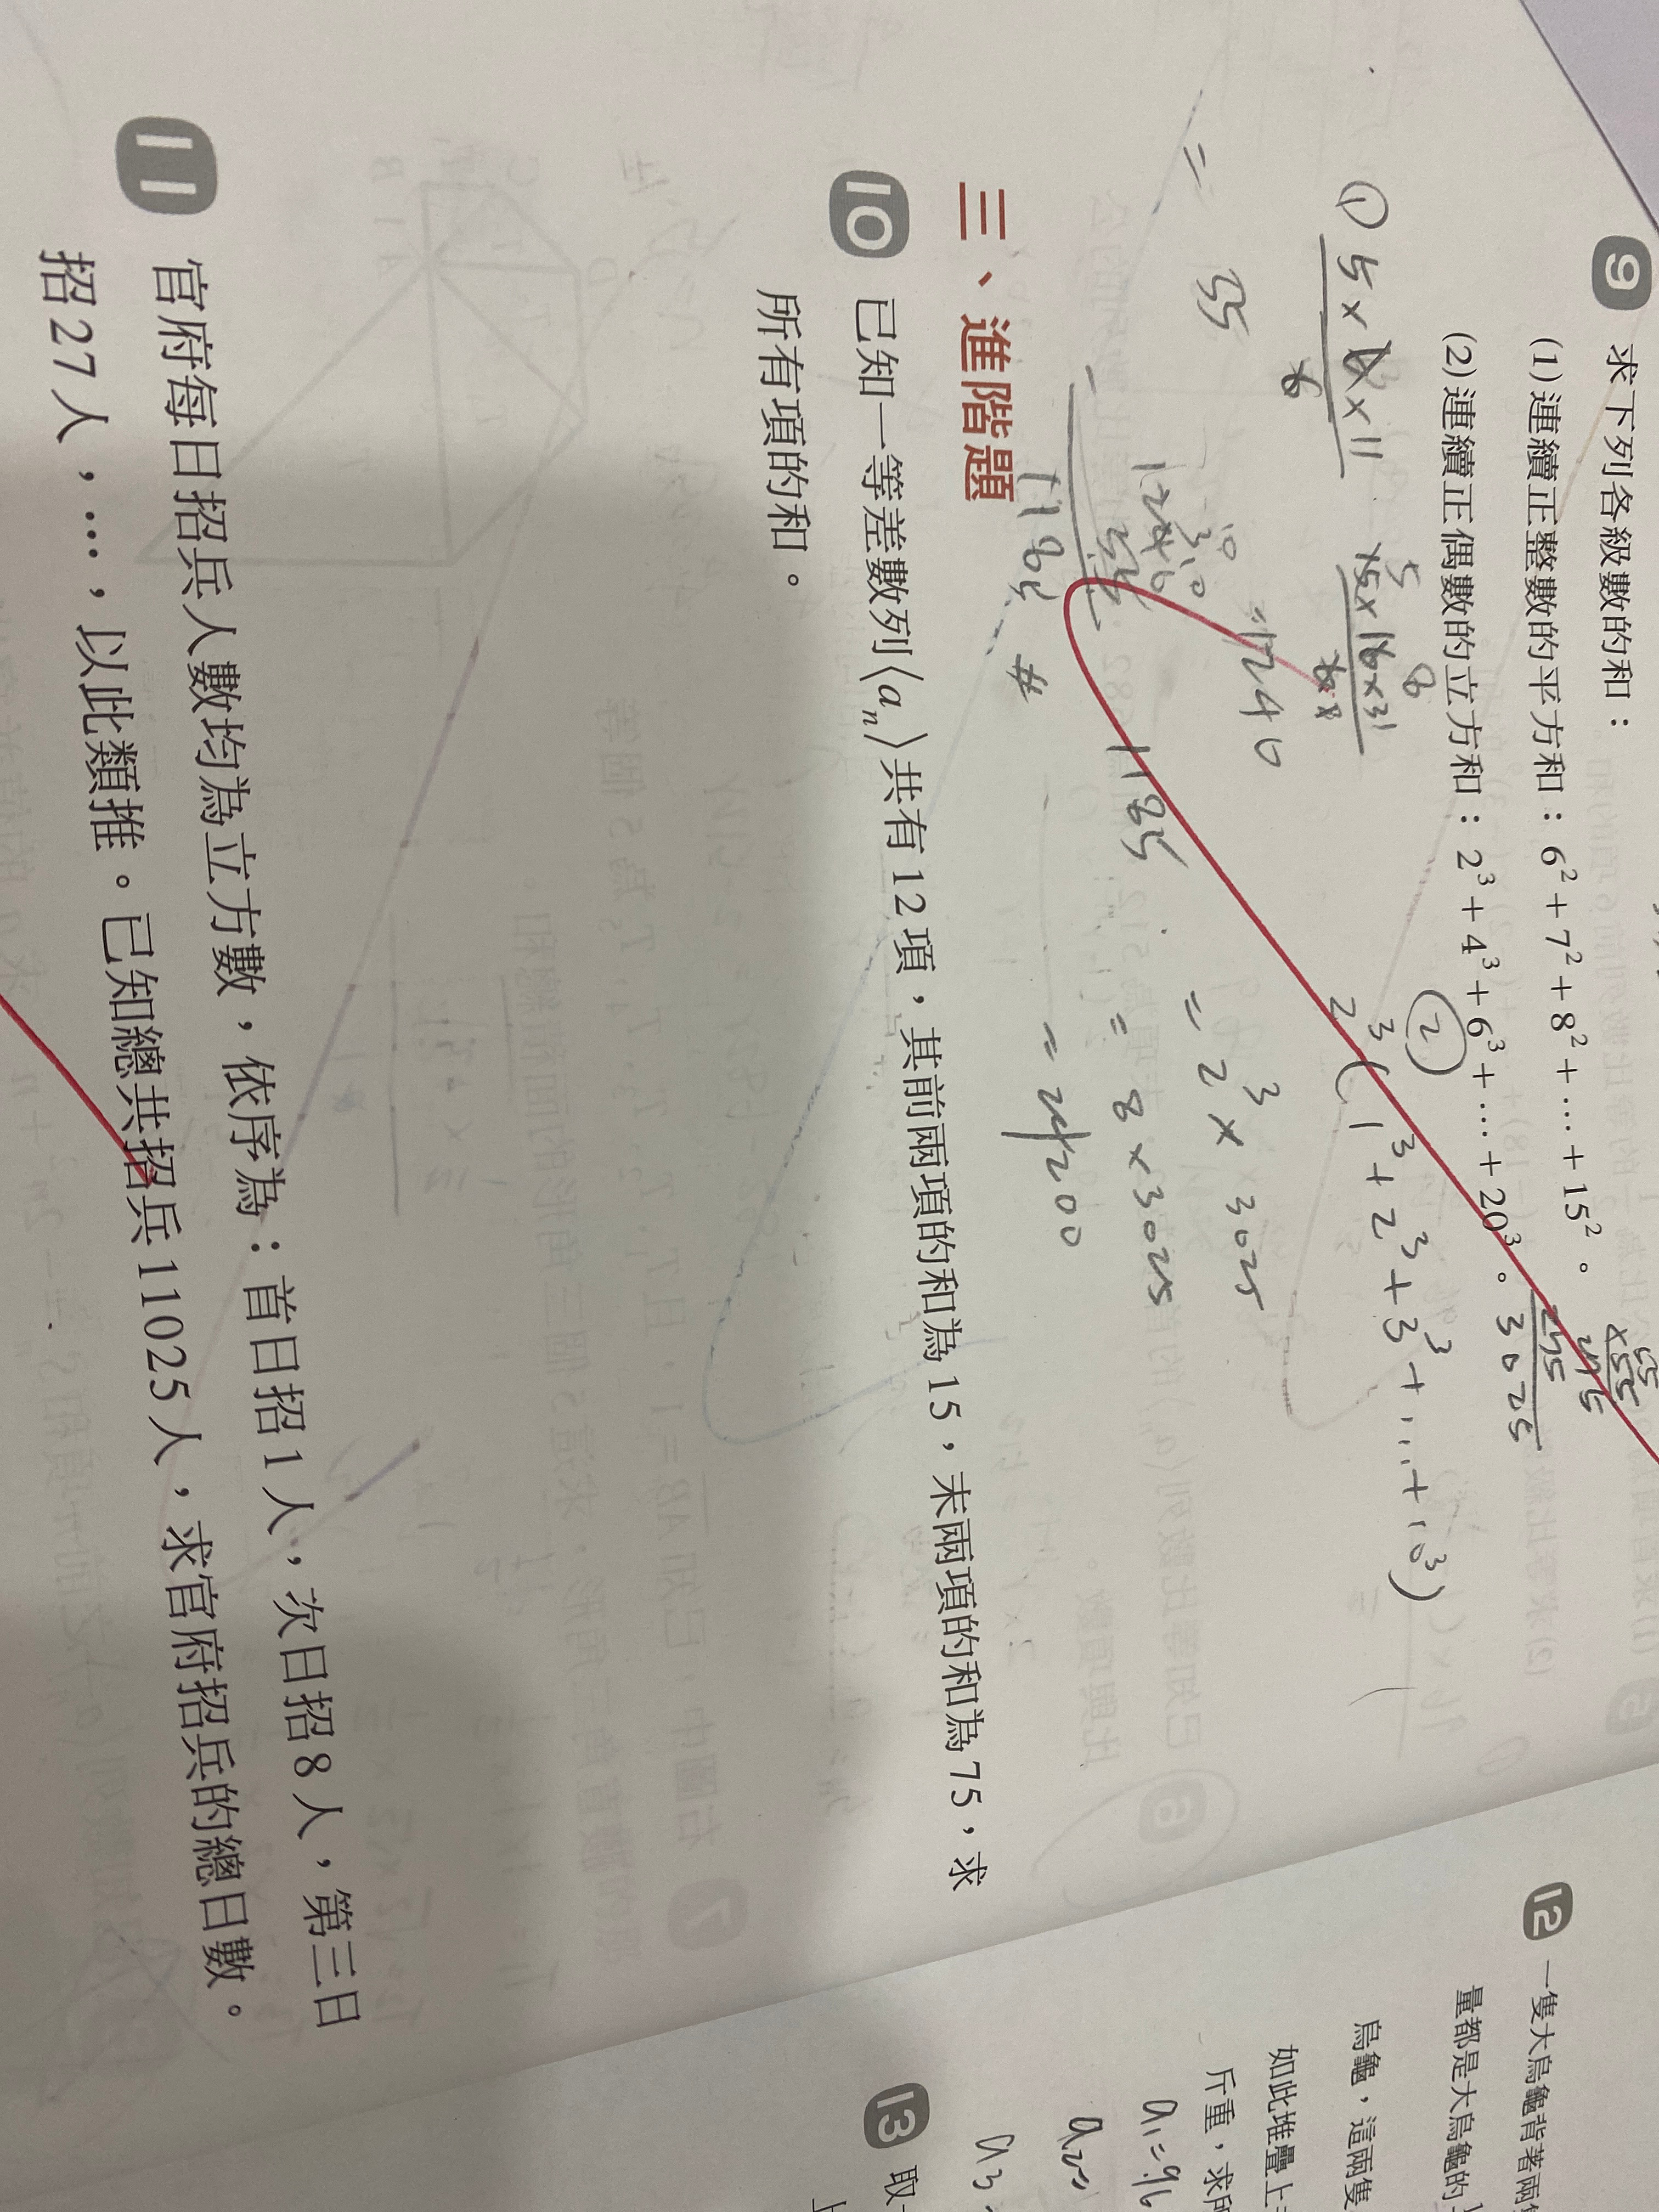 9 求下列各級數的和：
(1)連續正整數的平方和：6²+7²+8²+…+15²。
(2)連續正偶數的立方和：2³+4³+6³+…+20³。
55
×55
275
3025
① 5×6×11
6
= 55
15×16×31
6
=1240
1240
55
1185 #
1185
②
2³(1³+2³+3³+...+10³)
= 2³×3025
= 8×3025
= 24200
三、進階題
10 已知一等差數列⟨aₙ⟩共有12項，其前兩項的和為15，末兩項的和為75，求
所有項的和。
11 官府每日招兵人數均為立方數，依序為：首日招1人，次日招8人，第三日
招27人，…，以此類推。已知總共招兵11025人，求官府招兵的總日數。
12 一隻大烏龜背著兩
量都是大烏龜的
烏龜，這兩隻
如此堆疊上
斤重，求所
a₁=96
a₂=
a₃
13 取